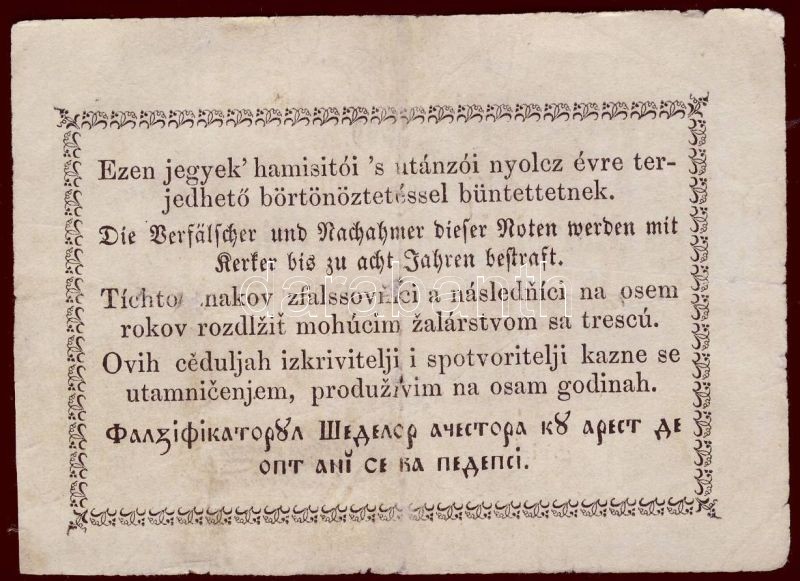 Ezen jegyek’ hamisitói ’s utánzói nyolcz évre ter-
jedhető börtönöztetéssel büntettetnek.
Die Verfälscher und Nachahmer dieser Noten werden mit
Kerker bis zu acht Jahren bestraft.
darabanth
Tíchto nakov zfalssovňíci a následňíci na osem
rokov rozdlžiť mohúcim žalárstvom sa trescú.
Ovih cěduljah izkrivitelji i spotvoritelji kazne se
utamničenjem, produživim na osam godinah.
Фалꙁіфікаторꙋл Шеделор ачестора кꙋ арест де
опт анĭ се ва педепсі.